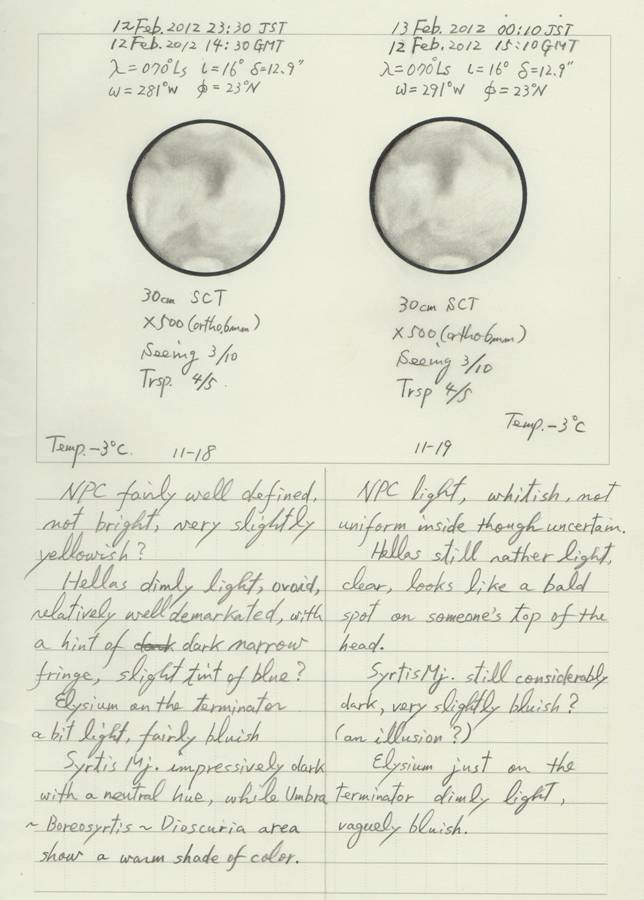 12 Feb. 2012 23:30 JST
12 Feb. 2012 14:30 GMT
λ=070°Ls ι=16° δ=12.9"
ω=281°W φ=23°N
30cm SCT
×500 (ortho6mm)
Seeing 3/10
Trsp. 4/5
Temp. -3°C. 11-18
13 Feb. 2012 00:10 JST
12 Feb. 2012 15:10 GMT
λ=070°Ls ι=16° δ=12.9"
ω=291°W φ=23°N
30cm SCT
×500 (ortho6mm)
Seeing 3/10
Trsp 4/5
Temp. -3°C
11-19
NPC fairly well defined,
not bright, very slightly
yellowish?
Hellas dimly light, ovoid,
relatively well demarkated, with
a hint of dark narrow
fringe, slight tint of blue?
Elysium on the terminator
a bit light, fairly bluish
Syrtis Mj. impressively dark
with a neutral hue, while Umbra
~ Boreosyrtis ~ Dioscuria area
show a warm shade of color.
NPC light, whitish, not
uniform inside though uncertain.
Hellas still rather light,
clear, looks like a bald
spot on someone's top of the
head.
Syrtis Mj. still considerably
dark, very slightly bluish?
(an illusion?)
Elysium just on the
terminator dimly light,
vaguely bluish.